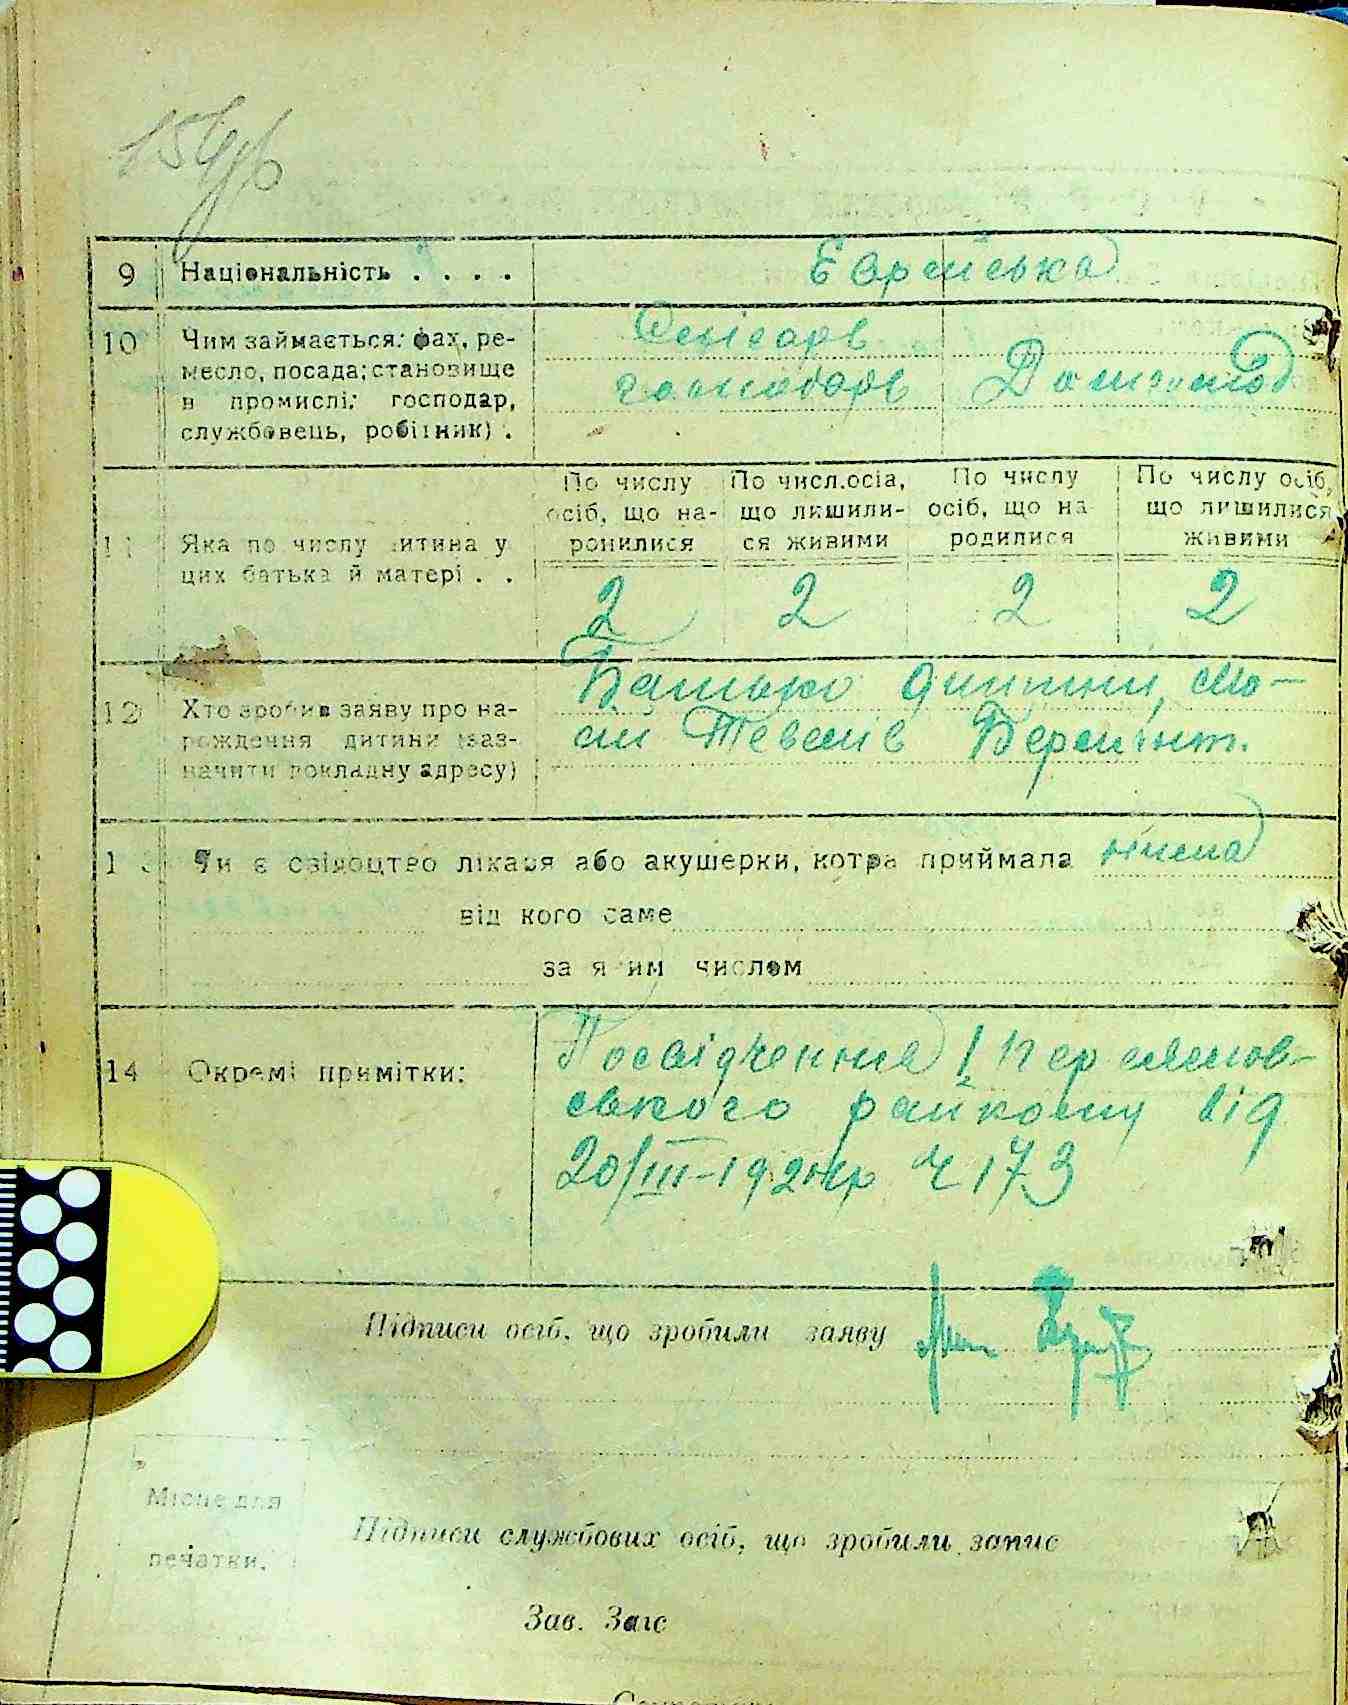 9 Національність . . . . Єврейська
10 Чим займається: фах, ре-
месло, посада; становище
в промислі: господар,
службовець, робітник) .
Слюсарь
господарь
11 Яка по числу дитина у
цих батька й матері . .
По числу осіб, що на- ронилися
По числ.осіа, що лишили- ся живими
По числу осіб, що на родилися
По числу осіб, що лишилися живими
2 2 2 2
12 Хто зробив заяву про на-
рождення дитини (заз-
начити докладну адресу)
Батько дитини, Мо-
Бермант.
13 Чи є свідоцтво лікаря або акушерки, котра приймала нема
від кого саме
за яким числом
14 Окремі примітки:
Посвідчення
ського райкому від
20/III-192 Ч 173
Підписи осіб, що зробили заяву
Місце для
печатки.
Підписи службових осіб, що зробили запис
Зав. Загс